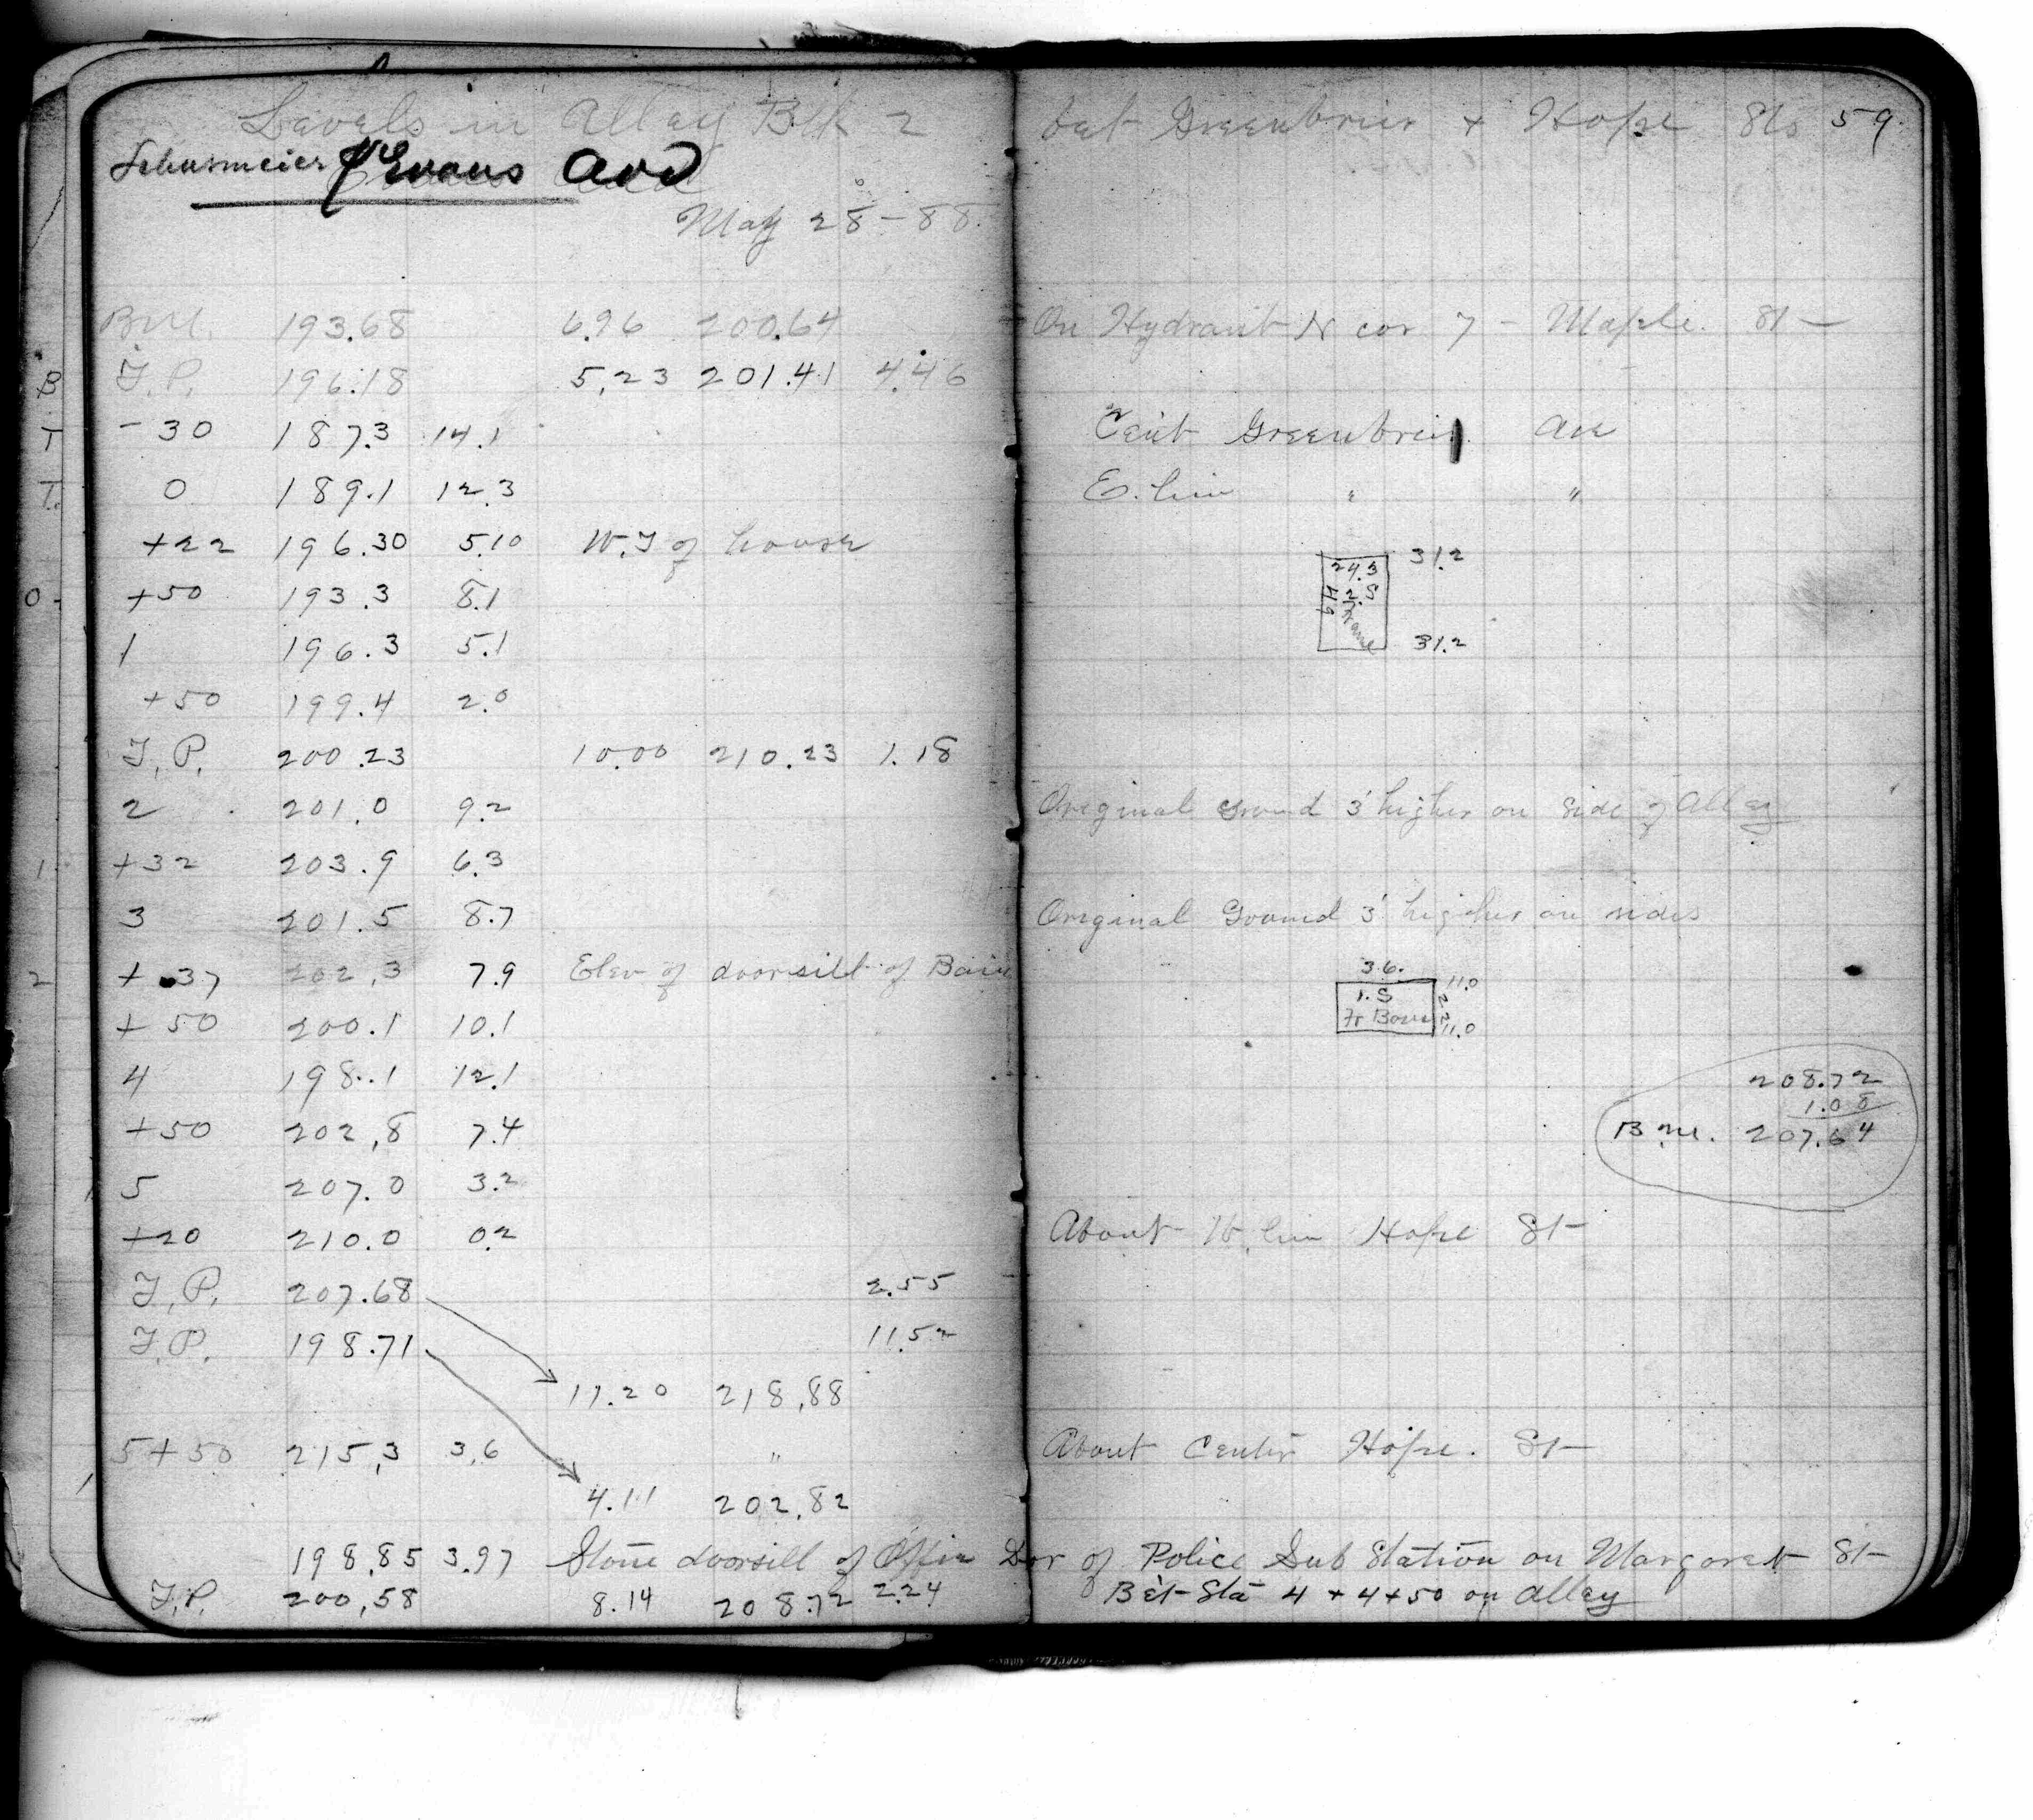 Levels in Alley Blk 2 bet Greenbrier + Hope Sts 59.
Evans Add
May 28 - 88.
B.M. 193.68 6.96 200.64 On Hydrant N cor 7 - Maple. St
T.P. 196.18 5.23 201.41 4.46
- 30 187.3 14.1 Cent Greenbrier Ave
0 189.1 12.3 E. line " "
+22 196.30 5.10 W.T of house
31.2
24.3
2. S
Frame
31.2
+50 193.3 8.1
1 196.3 5.1
+50 199.4 2.0
T.P. 200.23 10.00 210.23 1.18
2 201.0 9.2 Original Ground 3' higher on side of Alley
+32 203.9 6.3
3 201.5 8.7 Original Ground 3' higher on sides
+ 37 202.3 7.9 Elev of doorsill of Barn
36.
11.0
1. S
22
Fr Barn
11.0
+ 50 200.1 10.1
4 198.1 12.1
208.72
1.08
B.M. 207.64
+50 202.8 7.4
5 207.0 3.2
+20 210.0 0.2 About W. line Hope St
T.P. 207.68 2.55
T.P. 198.71 11.52
11.20 218.88
5+50 215.3 3.6 " About Center Hope. St
4.11 202.82
198.85 3.97 Stone doorsill of Office Dor of Police Sub Station on Margaret St
T.P. 200.58 8.14 208.72 2.24 Bet Sta 4 + 4+50 on Alley